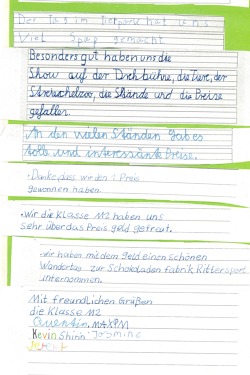 Der Tag im Tierpark hat uns
viel Spaß gemacht.
Besonders gut haben uns die
Show auf der Drehbühne, die Tiere, der
Streichelzoo, die Stände und die Preise
gefallen.
An den vielen Ständen gab es
tolle und interessante Preise.
Danke, dass wir den 1. Preis
gewonnen haben.
Wir die Klasse M2 haben uns
sehr über das Preisgeld gefreut.
wir haben mit dem Geld einen schönen
Wandertag zur Schokoladen Fabrik Rittersport
internommen.
Mit freundlichen Grüßen
die Klasse M2
Quentin, MAXIM
Kevin Shirin Jasmine